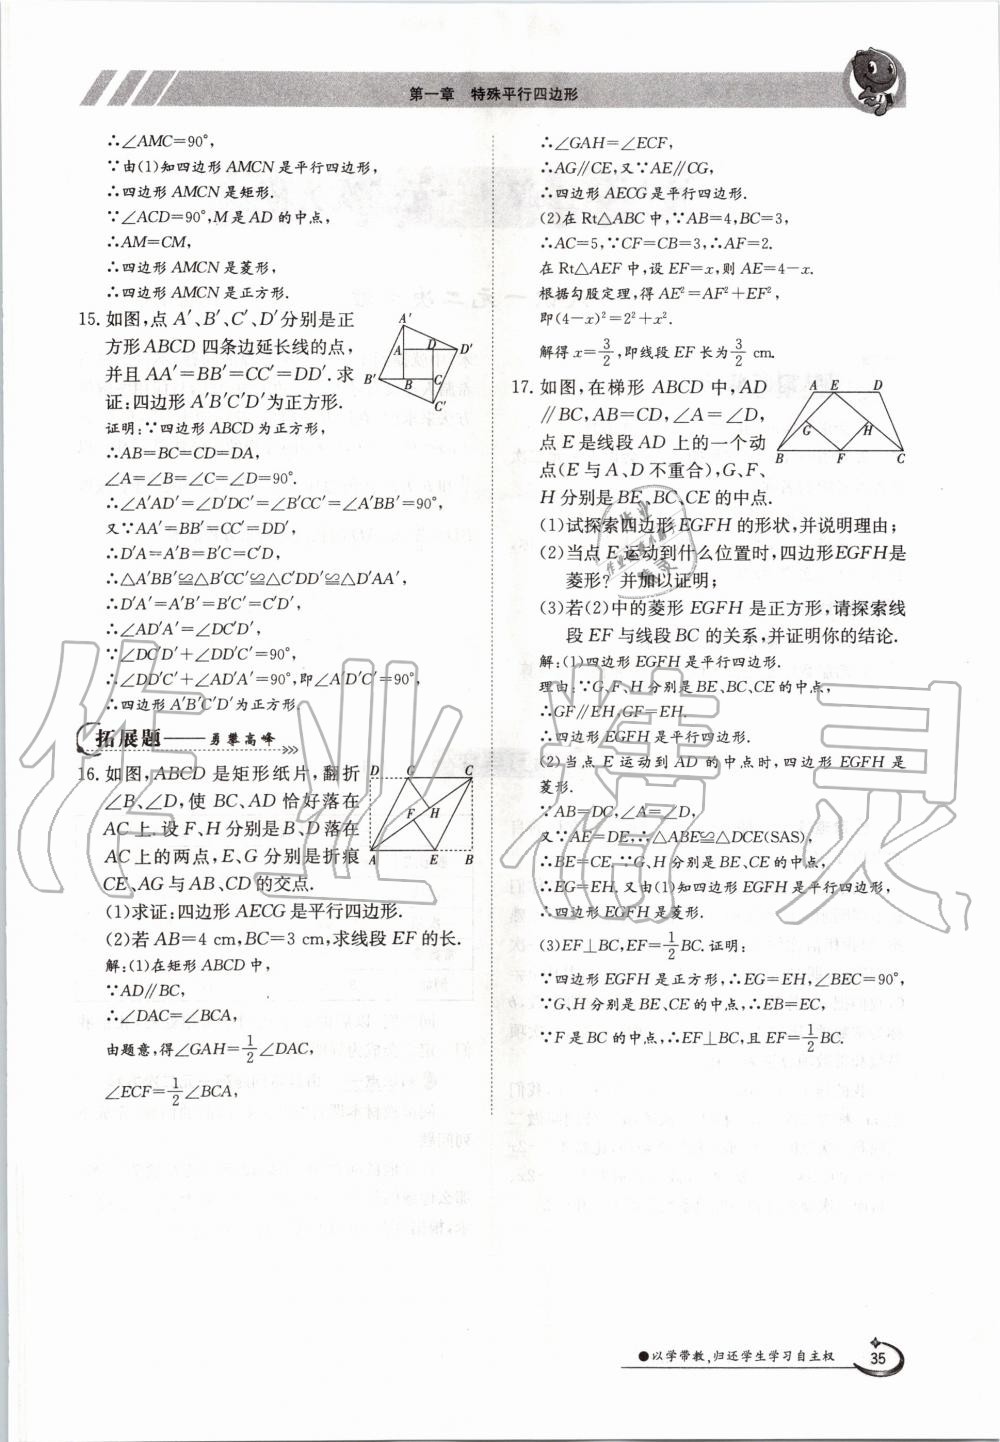 第一章 特殊平行四边形
∴∠AMC=90°,
∵由(1)知四边形AMCN是平行四边形,
∴四边形AMCN是矩形.
∵∠ACD=90°,M是AD的中点,
∴AM=CM,
∴四边形AMCN是菱形,
∴四边形AMCN是正方形.
15. 如图,点A′、B′、C′、D′分别是正
方形ABCD四条边延长线的点,
并且AA′=BB′=CC′=DD′.求
证:四边形A′B′C′D′为正方形.
A′
A D D′
B′ B C
C′
证明:∵四边形ABCD为正方形,
∴AB=BC=CD=DA,
∠A=∠B=∠C=∠D=90°.
∴∠A′AD′=∠D′DC′=∠B′CC′=∠A′BB′=90°,
又∵AA′=BB′=CC′=DD′,
∴D′A=A′B=B′C=C′D,
∴△A′BB′≌△B′CC′≌△C′DD′≌△D′AA′,
∴D′A′=A′B′=B′C′=C′D′,
∴∠AD′A′=∠DC′D′,
∵∠DC′D′+∠DD′C′=90°,
∴∠DD′C′+∠AD′A′=90°,即∠A′D′C′=90°,
∴四边形A′B′C′D′为正方形.
拓展题——勇攀高峰
16. 如图,ABCD是矩形纸片,翻折
∠B、∠D,使BC、AD恰好落在
AC上.设F、H分别是B、D落在
AC上的两点,E、G分别是折痕
CE、AG与AB、CD的交点.
D G C
F H
A E B
(1)求证:四边形AECG是平行四边形.
(2)若AB=4 cm,BC=3 cm,求线段EF的长.
解:(1)在矩形ABCD中,
∵AD∥BC,
∴∠DAC=∠BCA,
由题意,得∠GAH=1/2∠DAC,
∠ECF=1/2∠BCA,
∴∠GAH=∠ECF,
∴AG∥CE,又∵AE∥CG,
∴四边形AECG是平行四边形.
(2)在Rt△ABC中,∵AB=4,BC=3,
∴AC=5,∵CF=CB=3,∴AF=2.
在Rt△AEF中,设EF=x,则AE=4-x.
根据勾股定理,得AE²=AF²+EF²,
即(4-x)²=2²+x².
解得x=3/2,即线段EF长为3/2 cm.
17. 如图,在梯形ABCD中,AD
∥BC,AB=CD,∠A=∠D,
点E是线段AD上的一个动
点(E与A、D不重合),G、F、
H分别是BE、BC、CE的中点.
A E D
G H
B F C
(1)试探索四边形EGFH的形状,并说明理由;
(2)当点E运动到什么位置时,四边形EGFH是
菱形?并加以证明;
(3)若(2)中的菱形EGFH是正方形,请探索线
段EF与线段BC的关系,并证明你的结论.
解:(1)四边形EGFH是平行四边形.
理由:∵G、F、H分别是BE、BC、CE的中点,
∴GF∥EH,GF=EH.
∴四边形EGFH是平行四边形.
(2)当点E运动到AD的中点时,四边形EGFH是
菱形.
∵AB=DC,∠A=∠D,
又∵AE=DE,∴△ABE≌△DCE(SAS),
∴BE=CE,∵G、H分别是BE、CE的中点,
∴EG=EH,又由(1)知四边形EGFH是平行四边形,
∴四边形EGFH是菱形.
(3)EF⊥BC,EF=1/2BC.证明:
∵四边形EGFH是正方形,∴EG=EH,∠BEC=90°,
∵G、H分别是BE、CE的中点,∴EB=EC,
∵F是BC的中点,∴EF⊥BC,且EF=1/2BC.
作业精灵
●以学带教,归还学生学习自主权
35